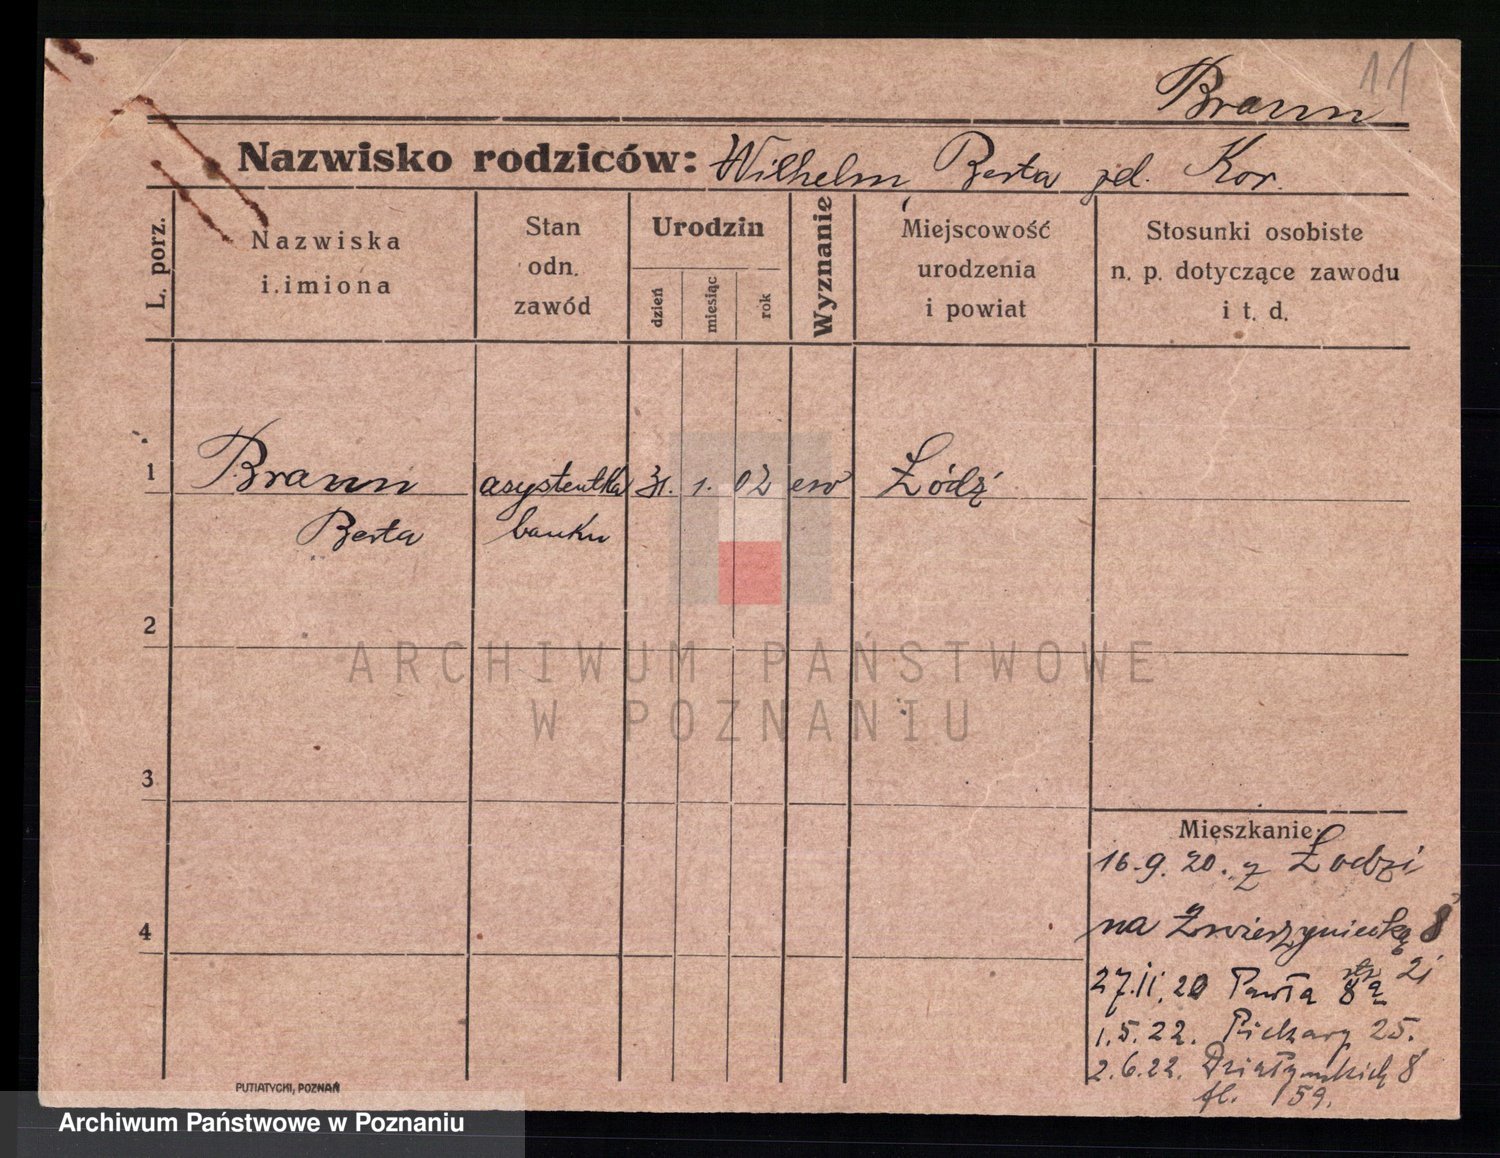 11
Braun
Nazwisko rodziców: Wilhelm, Berta zd. Kor.
L. porz.
Nazwiska
i imiona
Stan
odn.
zawód
Urodzin
dzień
miesiąc
rok
Wyznanie
Miejscowość
urodzenia
i powiat
Stosunki osobiste
n. p. dotyczące zawodu
i t. d.
1
Braun
Berta
asystentka
banku
31. 1. 02
ew
Łódź
2
3
4
Mieszkanie:
16.9.20. z Łodzi
na Zwierzyniecką 8
27.11.20 Pawła 8a
1.5.22. Piekary 25.
2.6.22. Działyńskich 8
fl. 159.
PUTIATYCKI, POZNAŃ
ARCHIWUM PAŃSTWOWE
W POZNANIU
Archiwum Państwowe w Poznaniu